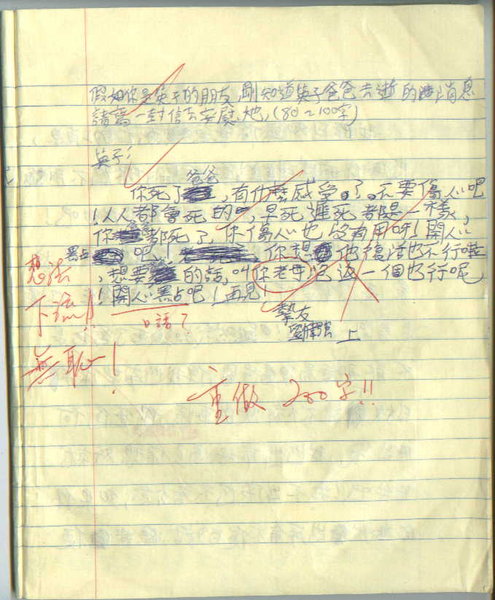 假如你是英子的朋友,剛知道英子爸爸去逝的消息
請寫一封信去安慰她,(80~100字)
英子:
爸爸
你死了,有什麼感受。了。不要傷心吧
!人人都會死的吧,早死遲死都是一樣,
你都死了,你傷心也沒有用啊!開心
點吧!你想他復活也不行啦
,想要的話,叫你老母返一個也行呢
!開心點吧!再見!
摯友
上
想法
下流!!
無恥!
口語?
重做 200字!!